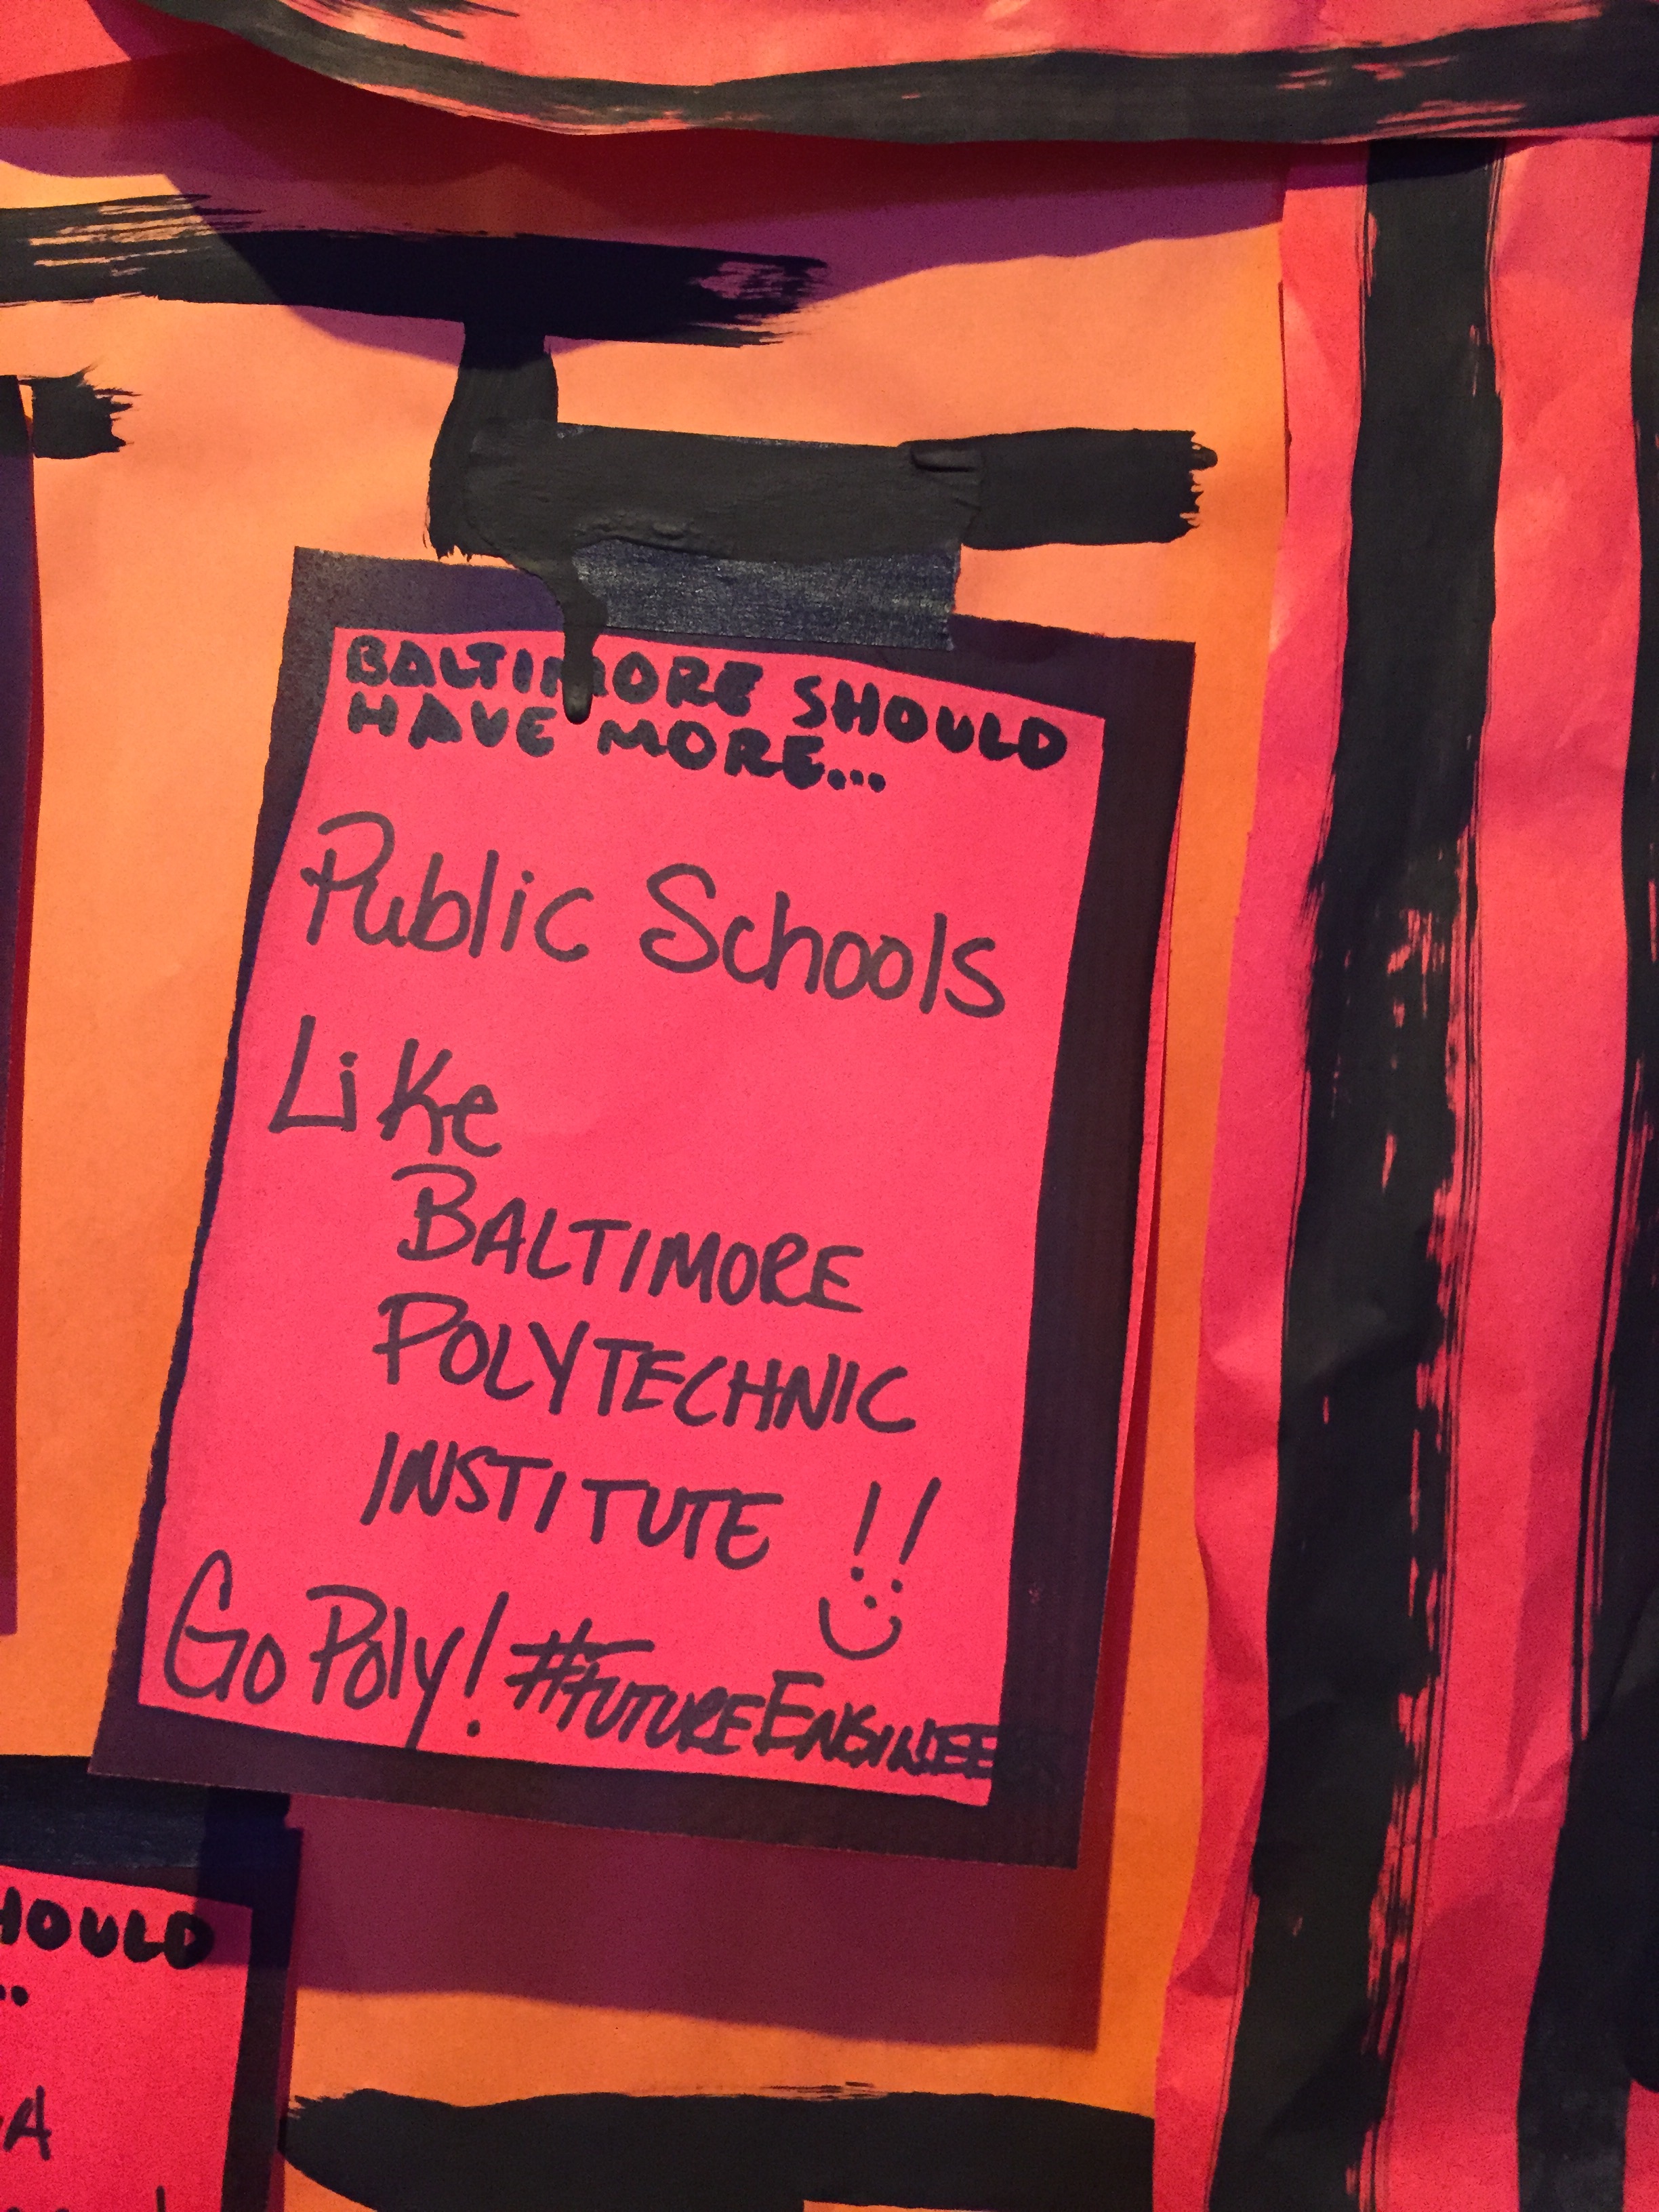 BALTIMORE SHOULD
HAVE MORE...
Public Schools
Like
BALTIMORE
POLYTECHNIC
INSTITUTE !!
Go Poly! #FUTUREENGINEE
HOULD
..
A